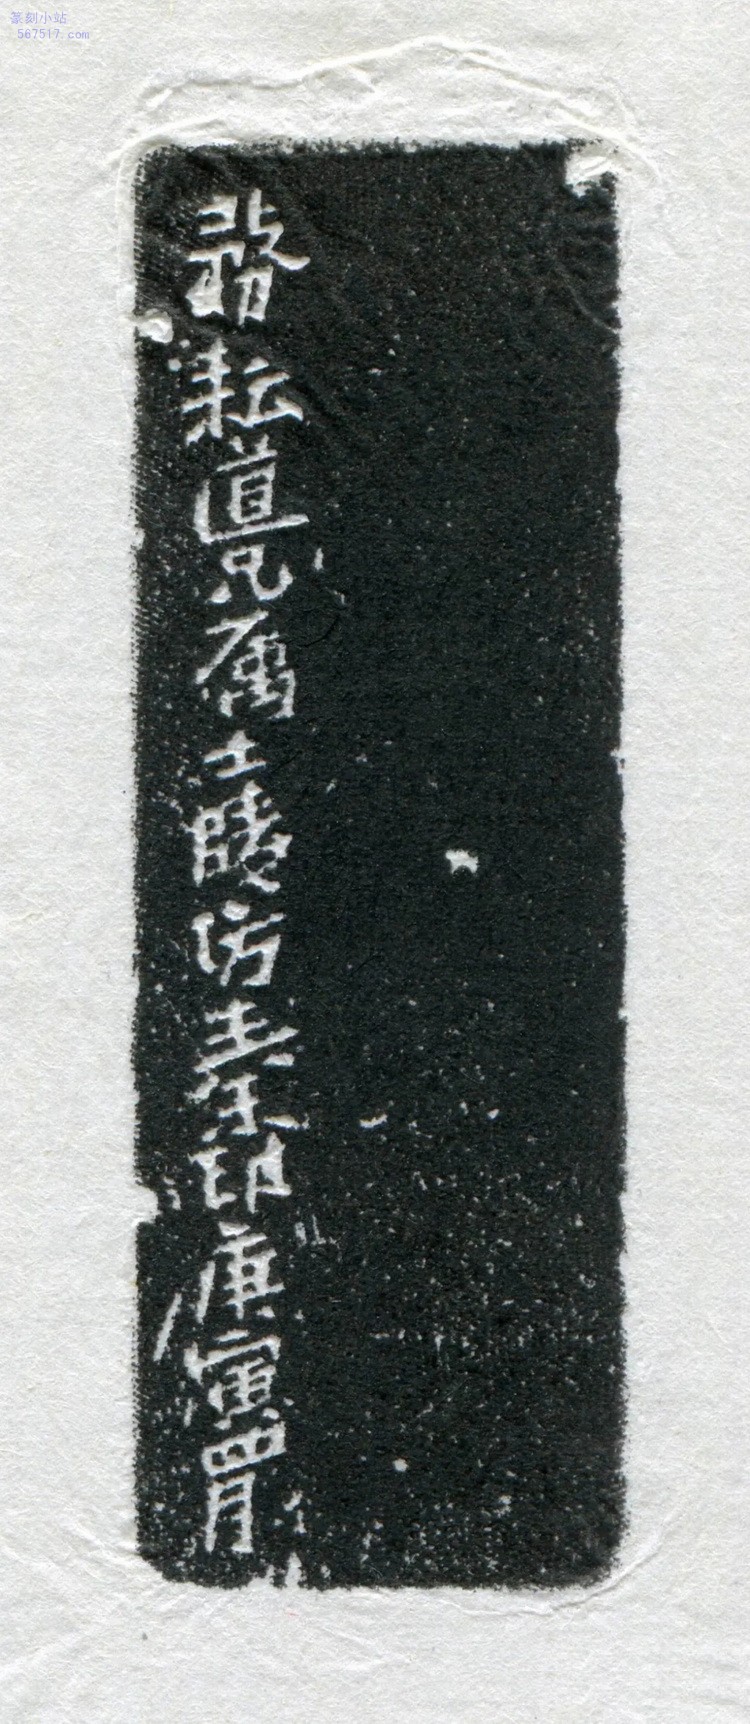 篆刻小站
567517.com
耘道兄属土陵仿秦印庚寅四月